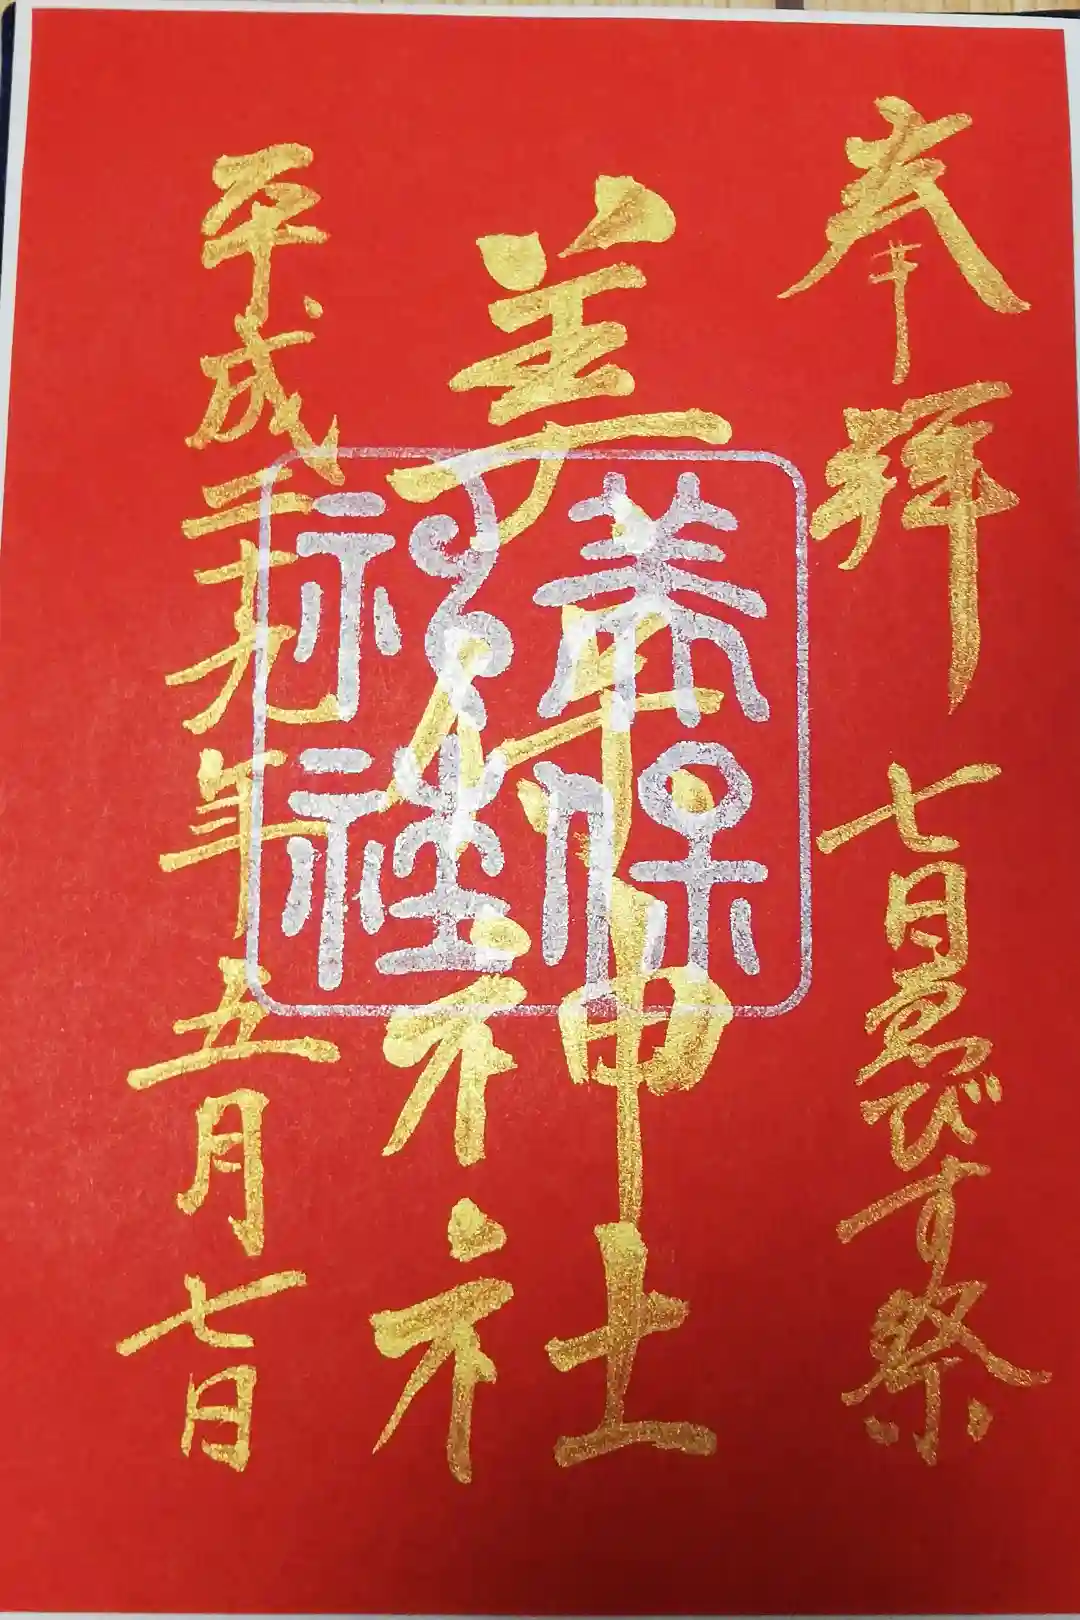 奉拝 七日ゑびす祭
美保神社
美保神社
平成二十九年五月七日